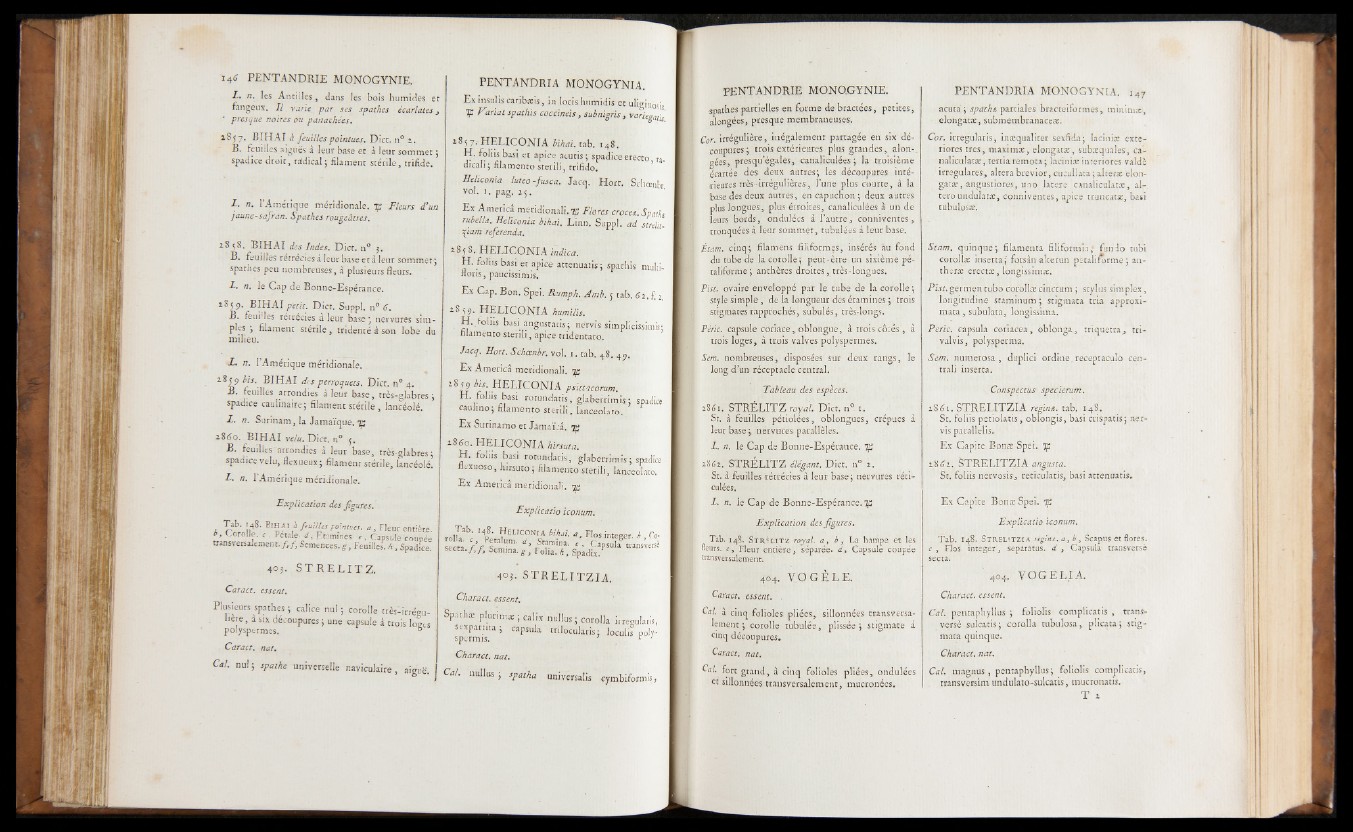 146 PENTANDRIE MONOGYNIE.
L. n. les Antilles, dans les bois humides et
fangeux. Il varie par ses spathes écarlates,
presque noires ou panachées.
2857. BIHAI à feuilles pointues. Dict. n° 2.
B. feuilles aiguës à leur base et à leur sommet;
spadice droit, radical; filament stérile, trifide.
L. n. l'Amérique méridionale. ♃ Fleurs d'un
jaune-safran. Spathes rougeâtres.
2858. BIHAI des Indes. Dict. n° 3.
B. feuilles rétrécies à leur base et à leur sommet;
spathes peu nombreuses, à plusieurs fleurs.
L. n. le Cap de Bonne-Espérance.
2859. BIHAI petit. Dict. Suppl. n° 6.
B. feuilles rétrécies à leur base; nervures sim-
ples; filament stérile, tridenté à son lobe du
milieu.
L. n. l'Amérique méridionale.
2859 bis. BIHAI des perroquets. Dict. n° 4.
B. feuilles arrondies à leur base, très-glabres;
spadice caulinaire; filament stérile, lancéolé.
L. n. Surinam, la Jamaïque. ♃
2860. BIHAI velu. Dict. n° 5.
B. feuilles arrondies à leur base, très-glabres;
spadice velu, flexueux; filament stérile, lancéolé.
L. n. l'Amérique méridionale.
Explication des figures.
Tab. 148. BIHAI à feuilles pointues. a, Fleur entière.
b, Corolle. c Pétale d, Etamines e, Capsule coupée
transversalement. f, f, Semences. g, Feuilles. h, Spadice.
403. STRELITZ.
Caract. essent.
Plusieurs spathes; calice nul; corolle très-irrégu-
lière, à six découpures; une capsule à trois loges
polyspermes.
Caract. nat.
Cal. nul; spathe universelle naviculaire, aiguë.
PENTANDRIA MONOGYNIA.
Ex insulis caribæis, in locis humidis et uliginosis.
♃ Variat spathis coccineis, subnigris, variegatis.
2857. HELICONIA bihai. tab. 148.
H. foliis basi et apice acutis; spadice erecto, ra-
dicali; filamento sterili, trifido.
Heliconia luteo-fusca. Jacq. Hort. Schœnbr.
vol. 1. pag. 25.
Ex Americâ meridionali. ♃ Flores crocei. Spatha
rubella. Heliconia bihai. Linn. Suppl. ad strelit-
ziam referenda.
2858. HELICONIA indica.
H. foliis basi et apice attenuatis; spathis multi-
floris, paucissimis.
Ex Cap. Bon. Spei. Rumph. Amb. 5 tab. 62. f. 2.
2859. HELICONIA humilis.
H. foliis basi angustatis; nervis simplicissimis;
filamento sterili, apice tridentato.
Jacq. Hort. Schœnbr. vol. 1. tab. 48. 49.
Ex Americâ meridionali. ♃
2859 bis. HELICONIA psittacorum.
H. foliis basi rotundatis, glaberrimis; spadice
caulino; filamento sterili, lanceolato.
Ex Surinamo et Jamaicâ. ♃
2860. HELICONIA hirsuta.
H. foliis basi rotundatis, glaberrimis; spadice
flexuoso, hirsuto; filamento sterili, lanceolato.
Ex Americâ meridionali. ♃
Explicatio iconum.
Tab. 148. HELICONIA bihai. a, Flos integer. b, Co-
rolla. c, Petalum. d, Stamina. e, Capsula transversè
secta. f, f, Semina. g, Folia. h, Spadix.
403. STRELITZIA.
Charact. essent.
Spathæ plurimæ; calix nullus; corolla irregularis,
sexpartita; capsula trilocularis; loculis poly-
spermis.
Charact. nat.
Cal. nullus; spatha universalis cymbiformis,
PENTANDRIE MONOGYNIE.
spathes partielles en forme de bractées, petites,
alongées, presque membraneuses.
Cor. irrégulière, inégalement partagée en six dé-
coupures; trois extérieures plus grandes, alon-
gées, presqu'égales, canaliculées; la troisième
écartée des deux autres; les découpures inté-
rieures très-irrégulières, l'une plus courte, à la
base des deux autres, en capuchon; deux autres
plus longues, plus étroites, canaliculées à un de
leurs bords, ondulées à l'autre, conniventes,
tronquées à leur sommet, tubulées à leur base.
Étam. cinq; filamens filiformes, insérés au fond
du tube de la corolle; peut-être un sixième pé-
taliforme; anthères droites, très-longues.
Pist. ovaire enveloppé par le tube de la corolle;
style simple, de la longueur des étamines; trois
stigmates rapprochés, subulés, très-longs.
Péric. capsule coriace, oblongue, à trois côtés, à
trois loges, à trois valves polyspermes.
Sem. nombreuses, disposées sur deux rangs, le
long d'un réceptacle central.
Tableau des espèces.
2861. STRÉLITZ royal. Dict. n° 1.
St. à feuilles pétiolées, oblongues, crépues à
leur base; nervures parallèles.
L. n. le Cap de Bonne-Espérance. ♃
2862. STRÉLITZ élégant. Dict. n° 2.
St. à feuilles rétrécies à leur base; nervures réti-
culées.
L. n. le Cap de Bonne-Espérance. ♃
Explication des figures.
Tab. 148. STRÉLITZ royal. a, b, La hampe et les
fleurs. c, Fleur entière, séparée. d, Capsule coupée
transversalement.
404. VOGÈLE.
Caract. essent.
Cal. à cinq folioles pliées, sillonnées transversa-
lement; corolle tubulée, plissée; stigmate à
cinq découpures.
Caract. nat.
Cal. fort grand, à cinq folioles pliées, ondulées
et sillonnées transversalement, mucronées.
PENTANDRIA MONOGYNIA. 147
acuta; spathæ partiales bracteiformes, minimæ,
elongatæ, submembranaceæ.
Cor. irregularis, inæqualiter sexfida; laciniæ exte-
riores tres, maximæ, elongatæ, subæquales, ca-
naliculatæ, tertia remota; laciniæ interiores valdè
irregulares, altera brevior, cucullata; alteræ elon-
gatæ, angustiores, uno latere canaliculatæ, al-
tero undulatæ, conniventes, apice truncatæ, basi
tubulosæ.
Stam. quinque; filamenta filiformia, fundo tubi
corollæ inserta; forsàn alterun petaliforme; an-
theræ erectæ, longissimæ.
Pist. germen tubo corollæ cinctum; stylus simplex,
longitudine staminum; stigmata tria approxi-
mata, subulata, longissima.
Peric. capsula coriacea, oblonga, triquetra, tri-
valvis, polysperma.
Sem. numerosa, duplici ordine receptaculo cen-
trali inserta.
Conspectus specierum.
2861. STRELITZIA regina. tab. 148.
St. foliis petiolatis, oblongis, basi crispatis; ner-
vis parallelis.
Ex Capite Bonæ Spei. ♃
2862. STRELITZIA angusta.
St. foliis nervosis, reticulatis, basi attenuatis.
Ex Capite Bonæ Spei. ♃
Explicatio iconum.
Tab. 148. STRELITZIA regina. a, b, Scapus et flores.
c, Flos integer, separatus. d, Capsula transversè
secta.
404. VOGELIA.
Charact. essent.
Cal. pentaphyllus; foliolis complicatis, trans-
versè sulcatis; corolla tubulosa, plicata; stig-
mata quinque.
Charact. nat.
Cal. magnus, pentaphyllus; foliolis complicatis,
transversim undulato-sulcatis, mucronatis.
T 2